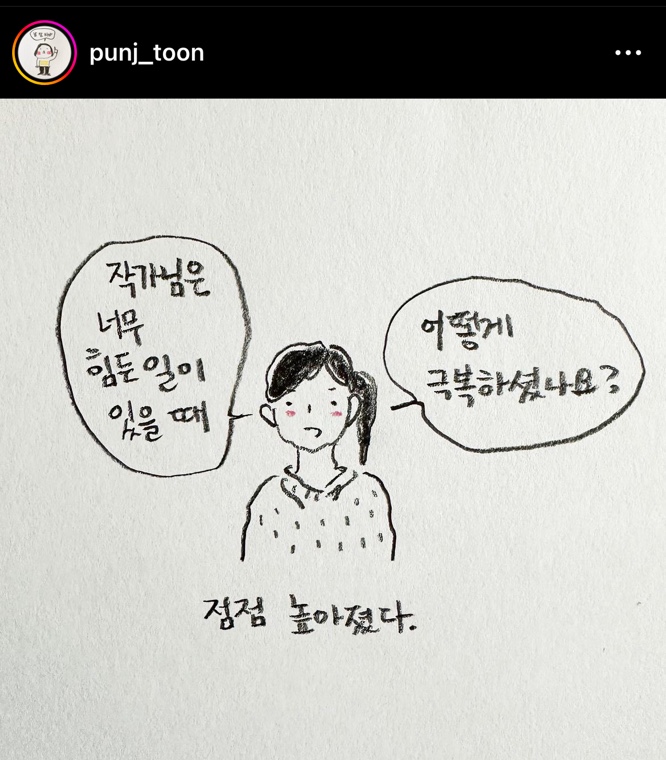 punj_toon
작가님은
너무
힘든 일이
있을 때
어떻게
극복하셨나요?
점점 높아졌다.